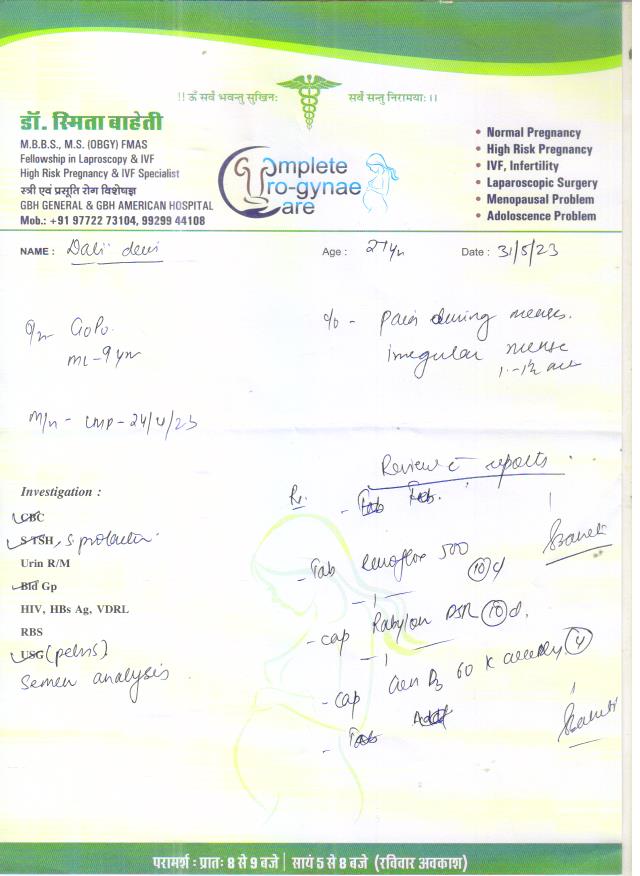 !! ॐ सर्वे भवन्तु सुखिनः सर्वे सन्तु निरामयाः ।।
डॉ. स्मिता बाहेती
M.B.B.S., M.S. (OBGY) FMAS
Fellowship in Laproscopy & IVF
High Risk Pregnancy & IVF Specialist
स्त्री एवं प्रसूति रोग विशेषज्ञ
GBH GENERAL & GBH AMERICAN HOSPITAL
Mob.: +91 97722 73104, 99299 44108
Complete
Uro-gynae
Care
• Normal Pregnancy
• High Risk Pregnancy
• IVF, Infertility
• Laparoscopic Surgery
• Menopausal Problem
• Adoloscence Problem
NAME : Dali devi Age : Date : 31/5/23
G0P0
ML-9yr
c/o - pain during menses.
irregular mense
M/H - LMP-24/4/23
Review c reports
Investigation :
CBC
S TSH, S prolactin
Urin R/M
Bld Gp
HIV, HBs Ag, VDRL
RBS
USG (pelvis)
Semen analysis
Rx.
- Tab 500 (10) d
- cap DSR (10) d.
- cap D3 60 K weekly (4)
- Tab
परामर्श : प्रातः 8 से 9 बजे | सायं 5 से 8 बजे (रविवार अवकाश)